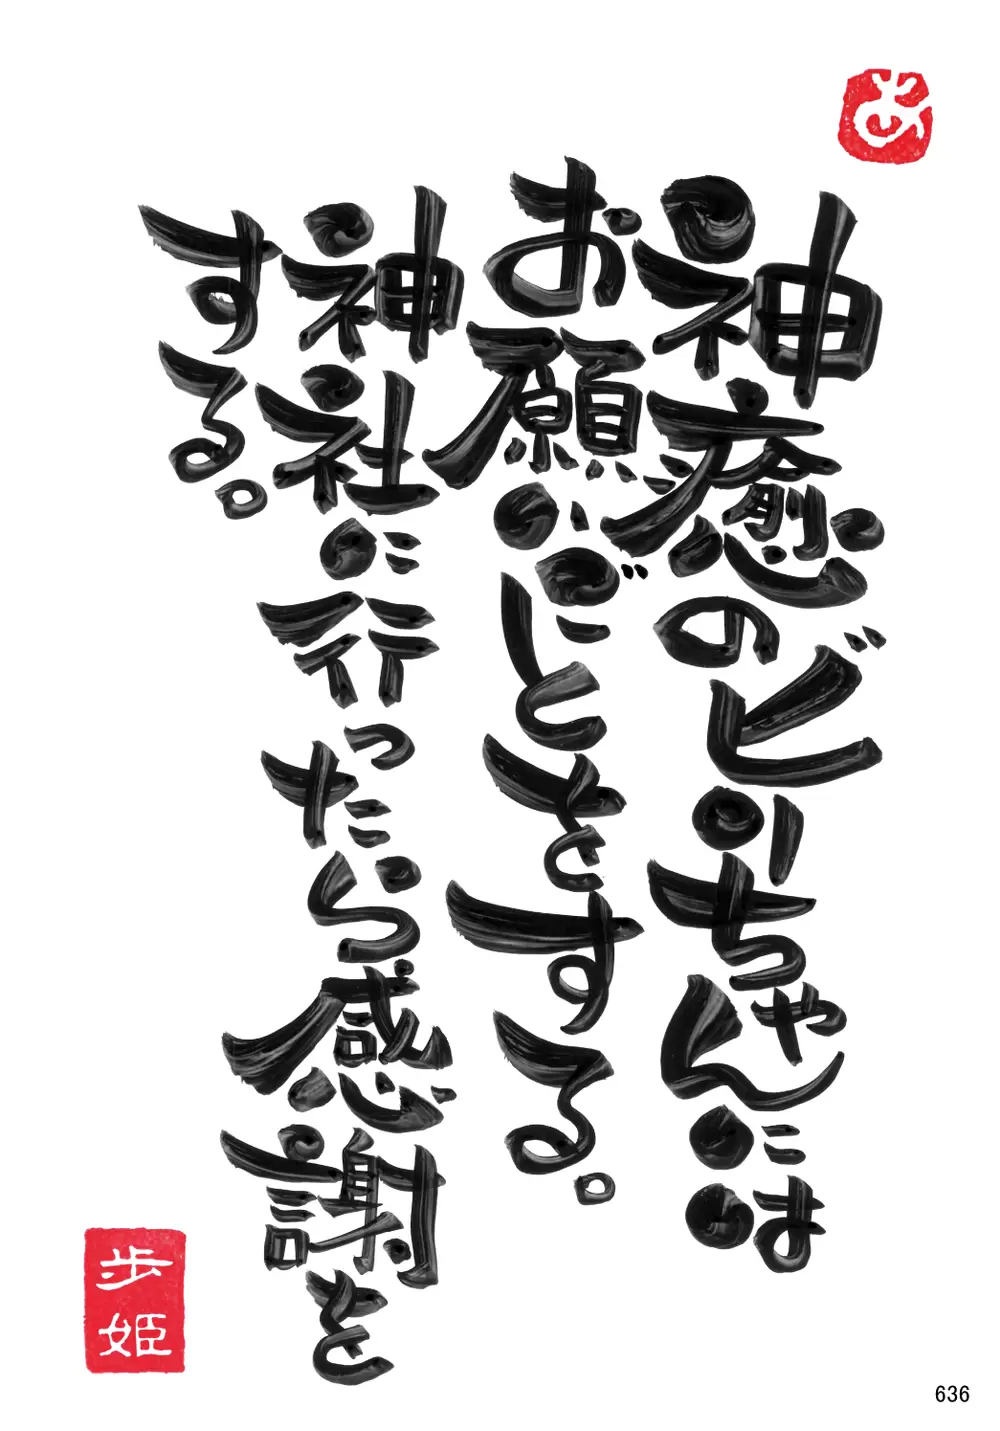 あ
神癒のピーちゃんには
お願いごとをする。
神社に行ったら感謝を
する。
歩姫
636